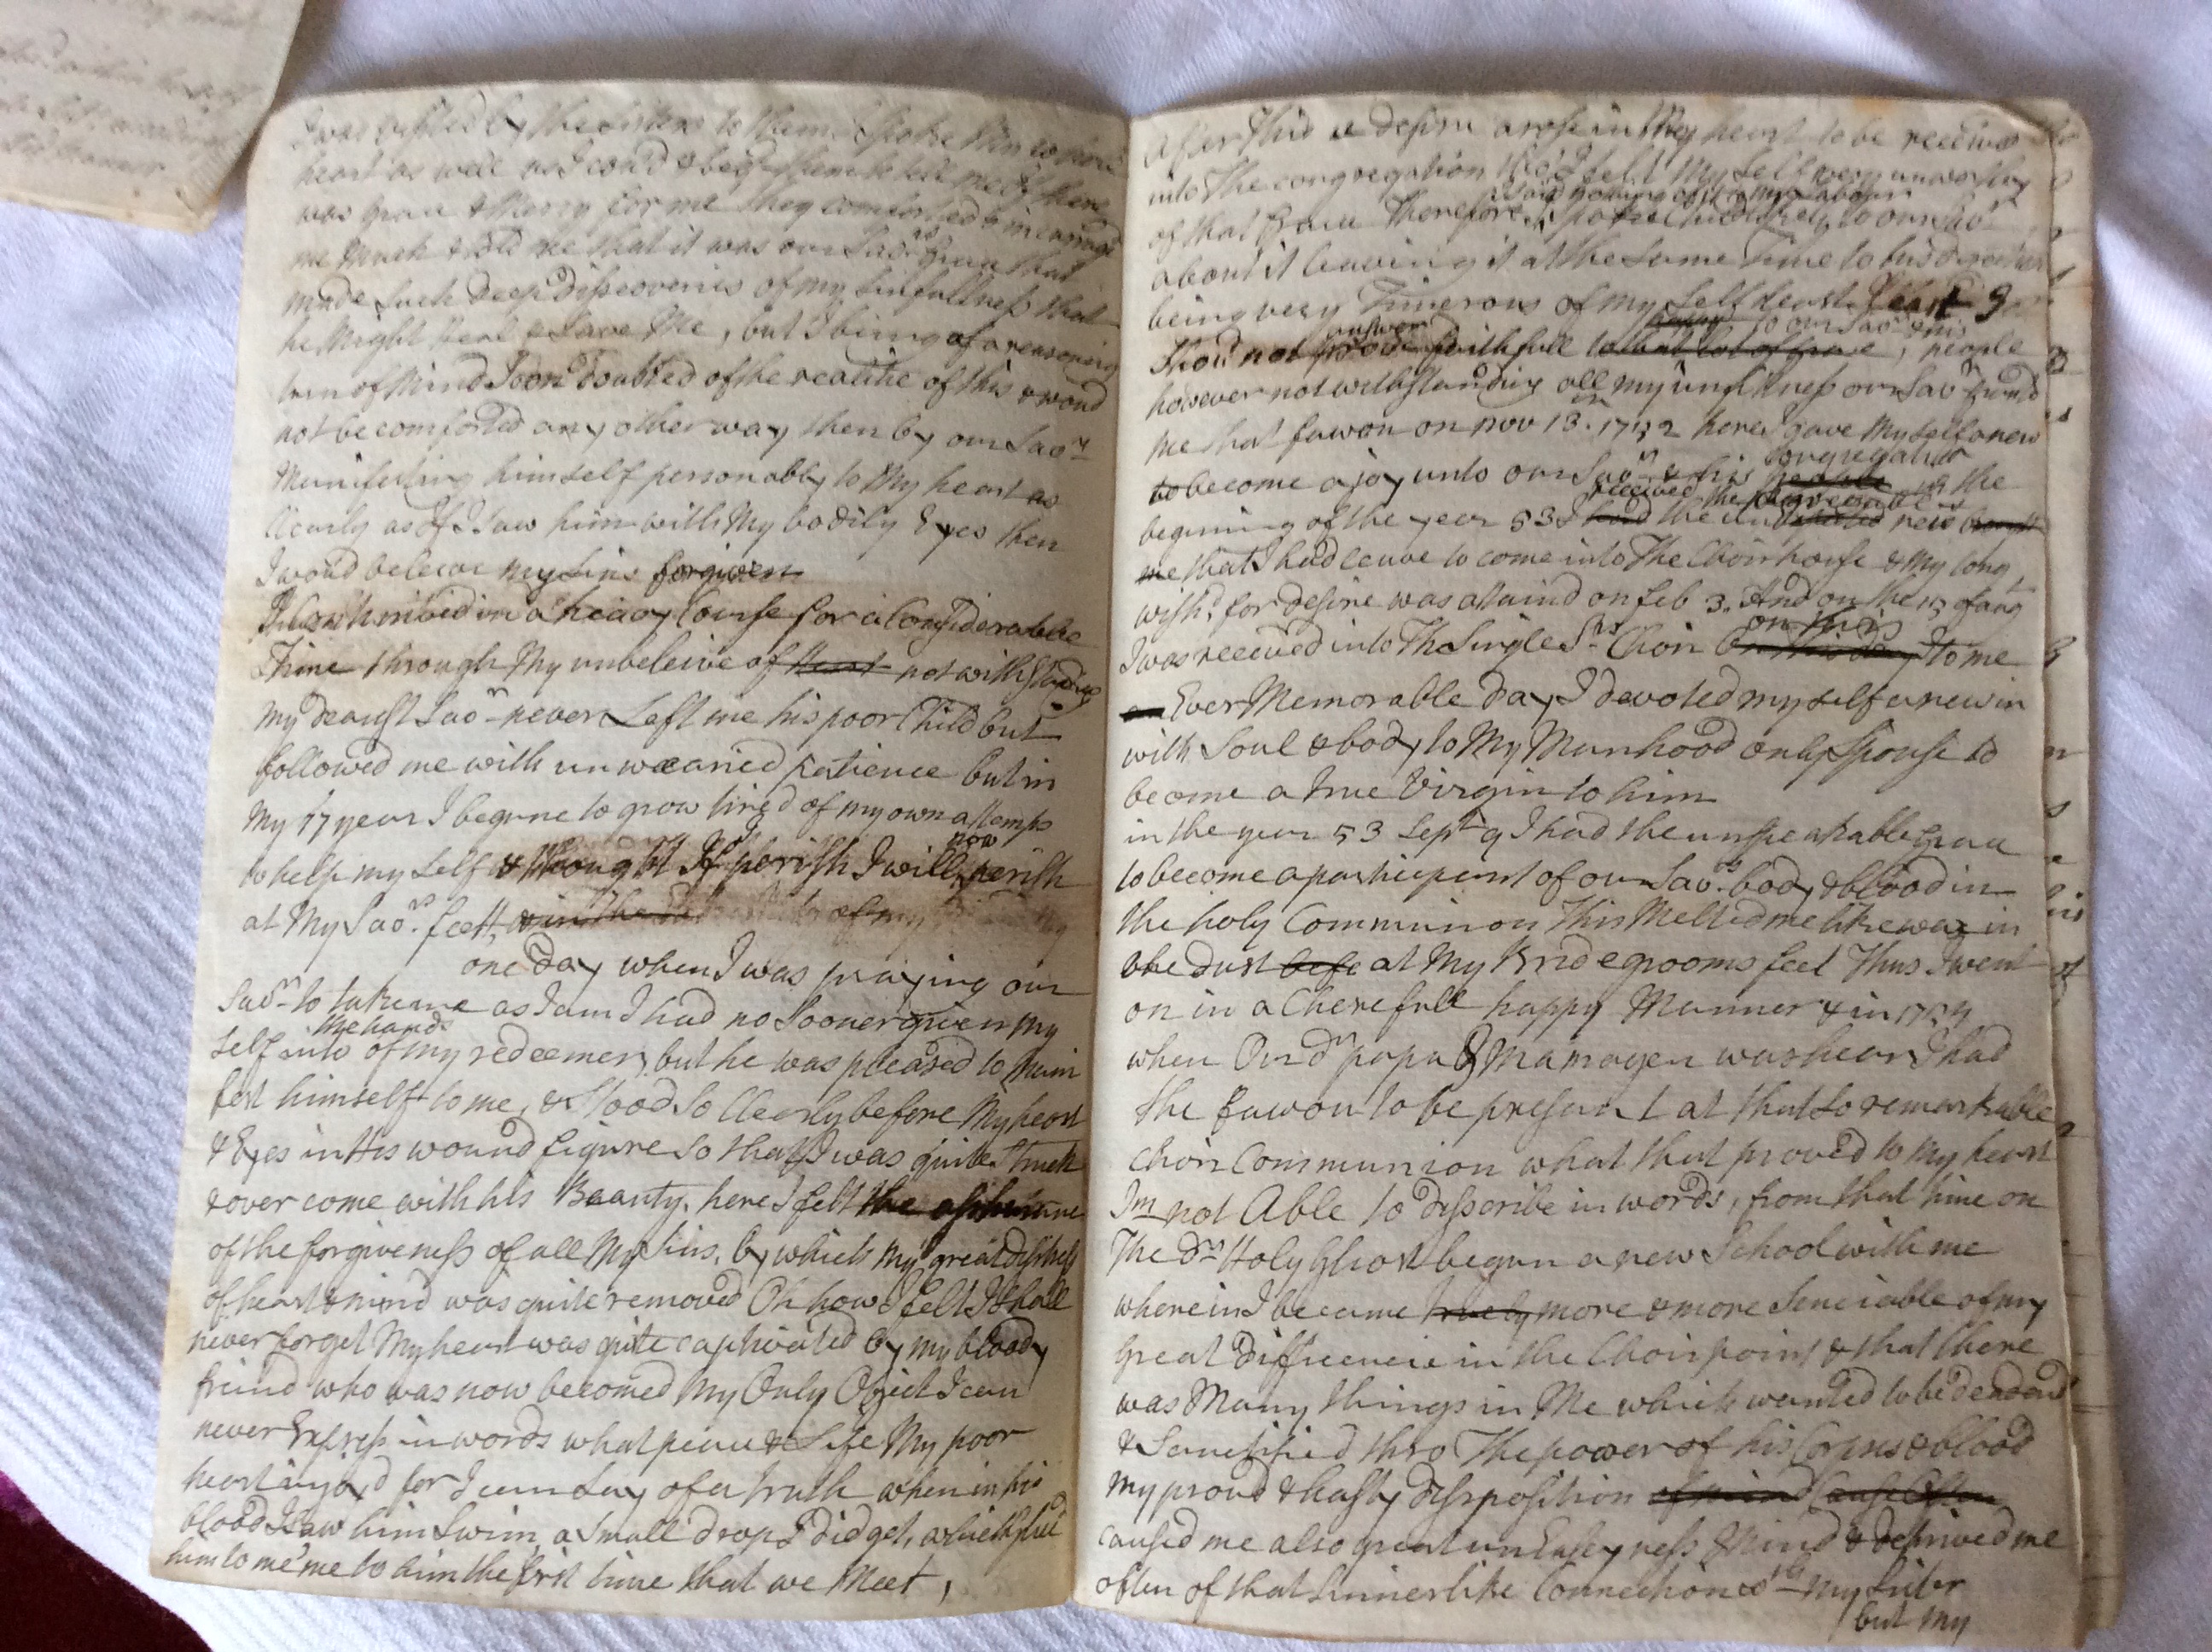 I was visited by the Sisters to them I spoke then so
heart as well as I coud & beg'd them to tell me if there
was grace & Mercy for me they comforted & incouraged
me Much & told me that it was our Savrs Grace that
made Such deep discoveries of my Sinfullness that
he Might heal & Save Me, but I being of a reasoning
turn of Mind Soon doubted of the realitie of this & woud
not be comforted any other way then by our Savr
Manifesting himself personably to My heart as
Clearly as if I Saw him with My bodily Eyes then
I woud beleive my Sins forgiven
I Continuied in a heavy Course for a Considerabele
Thime through My unbeleive of heart not withStanding
My dearest Savr never Left me his poor Child but
followed me with unwearied patience but in
My 17 year I begune to grow tired of my own attemps
to help my Self & thought If I perish I will now perish
at My Savrs feett, & in the of my
one day when I was praying our
Savr to take me as I am I had no Sooner given my
the hands
Self into of my redeemer, but he was pleased to Mani
fest himself to me, & Stood So Clearly before My heart
& Eyes in His wound figure So that I was quite Struck
& over come with his Beauty. here I felt the
of the forgiveness of all My Sins, by which my great distress
of heart & mind was quite removed Oh how I felt I Shall
never forget My heart was quite captivated by my bloody
freind who was now becomed My Only Object I can
never Express in words what peace & Life My poor
heart injoy'd for I can Say of a truth when in his
blood I Saw him Swim, a Small drop I did get, which glued
him to me me to him the first time that we Meet,
After This a desire arose in My heart to be received
into The congregation tho' I felt My Self very unworthy
& Said nothing of it to my Labour
of that Grace Therefore Spoke Childlikely to our Savr
about it leaving it at the Same Time to his direction
being very Timerous of my Self Least Least I
answer to our Savr & his
Shoud not prove faithfull to that lot of Grace, people
however not withstanding all my unfitness our Savr grantd
me that favour on nov 13. 1752 here I gave My Self anew
congregation
to become a joy unto our Savr & his people in the
received the
begining of the year 53 I had the news brought
me that I had leave to come into The Choir house & My long
wish'd for desire was attaind on feb 3. And on the 13 of aug
on this
I was received into The Single Srs Choir On this day to me
an Ever Memorable day I devoted my self anew in
with Soul & body to My Manhood only Spouse to
become a true Virgin to him
in the year 53 Sept 9 I had the unspeakable Grace
to become a partiecipent of our Savrs body & blood in
the holy Communion This Melted me like wax in
the dust befo at My Bridegrooms feet Thus I went
on in a Cherefull happy Manner & in 1754
when Our dr papa & Mamagen was hear I had
the favour to be present at that So remarkable
Choir Communion what that proved to My heart
Im not Able to disscribe in words, from that time on
The dr Holy Ghost begun a new School with me
wherein I became truely more & more Senciable of my
Great Differencie in the Choir point & that there
was Many things in Me which wanted to be deaden'd
& Sanctifie'd thro The power of his Corpus & blood
My proud & hasty dissposition of mind Cause Often
caused me also great unEaseyness of Mind & deprived me
often of that Sinnerlike Connection wth my Sister
but My